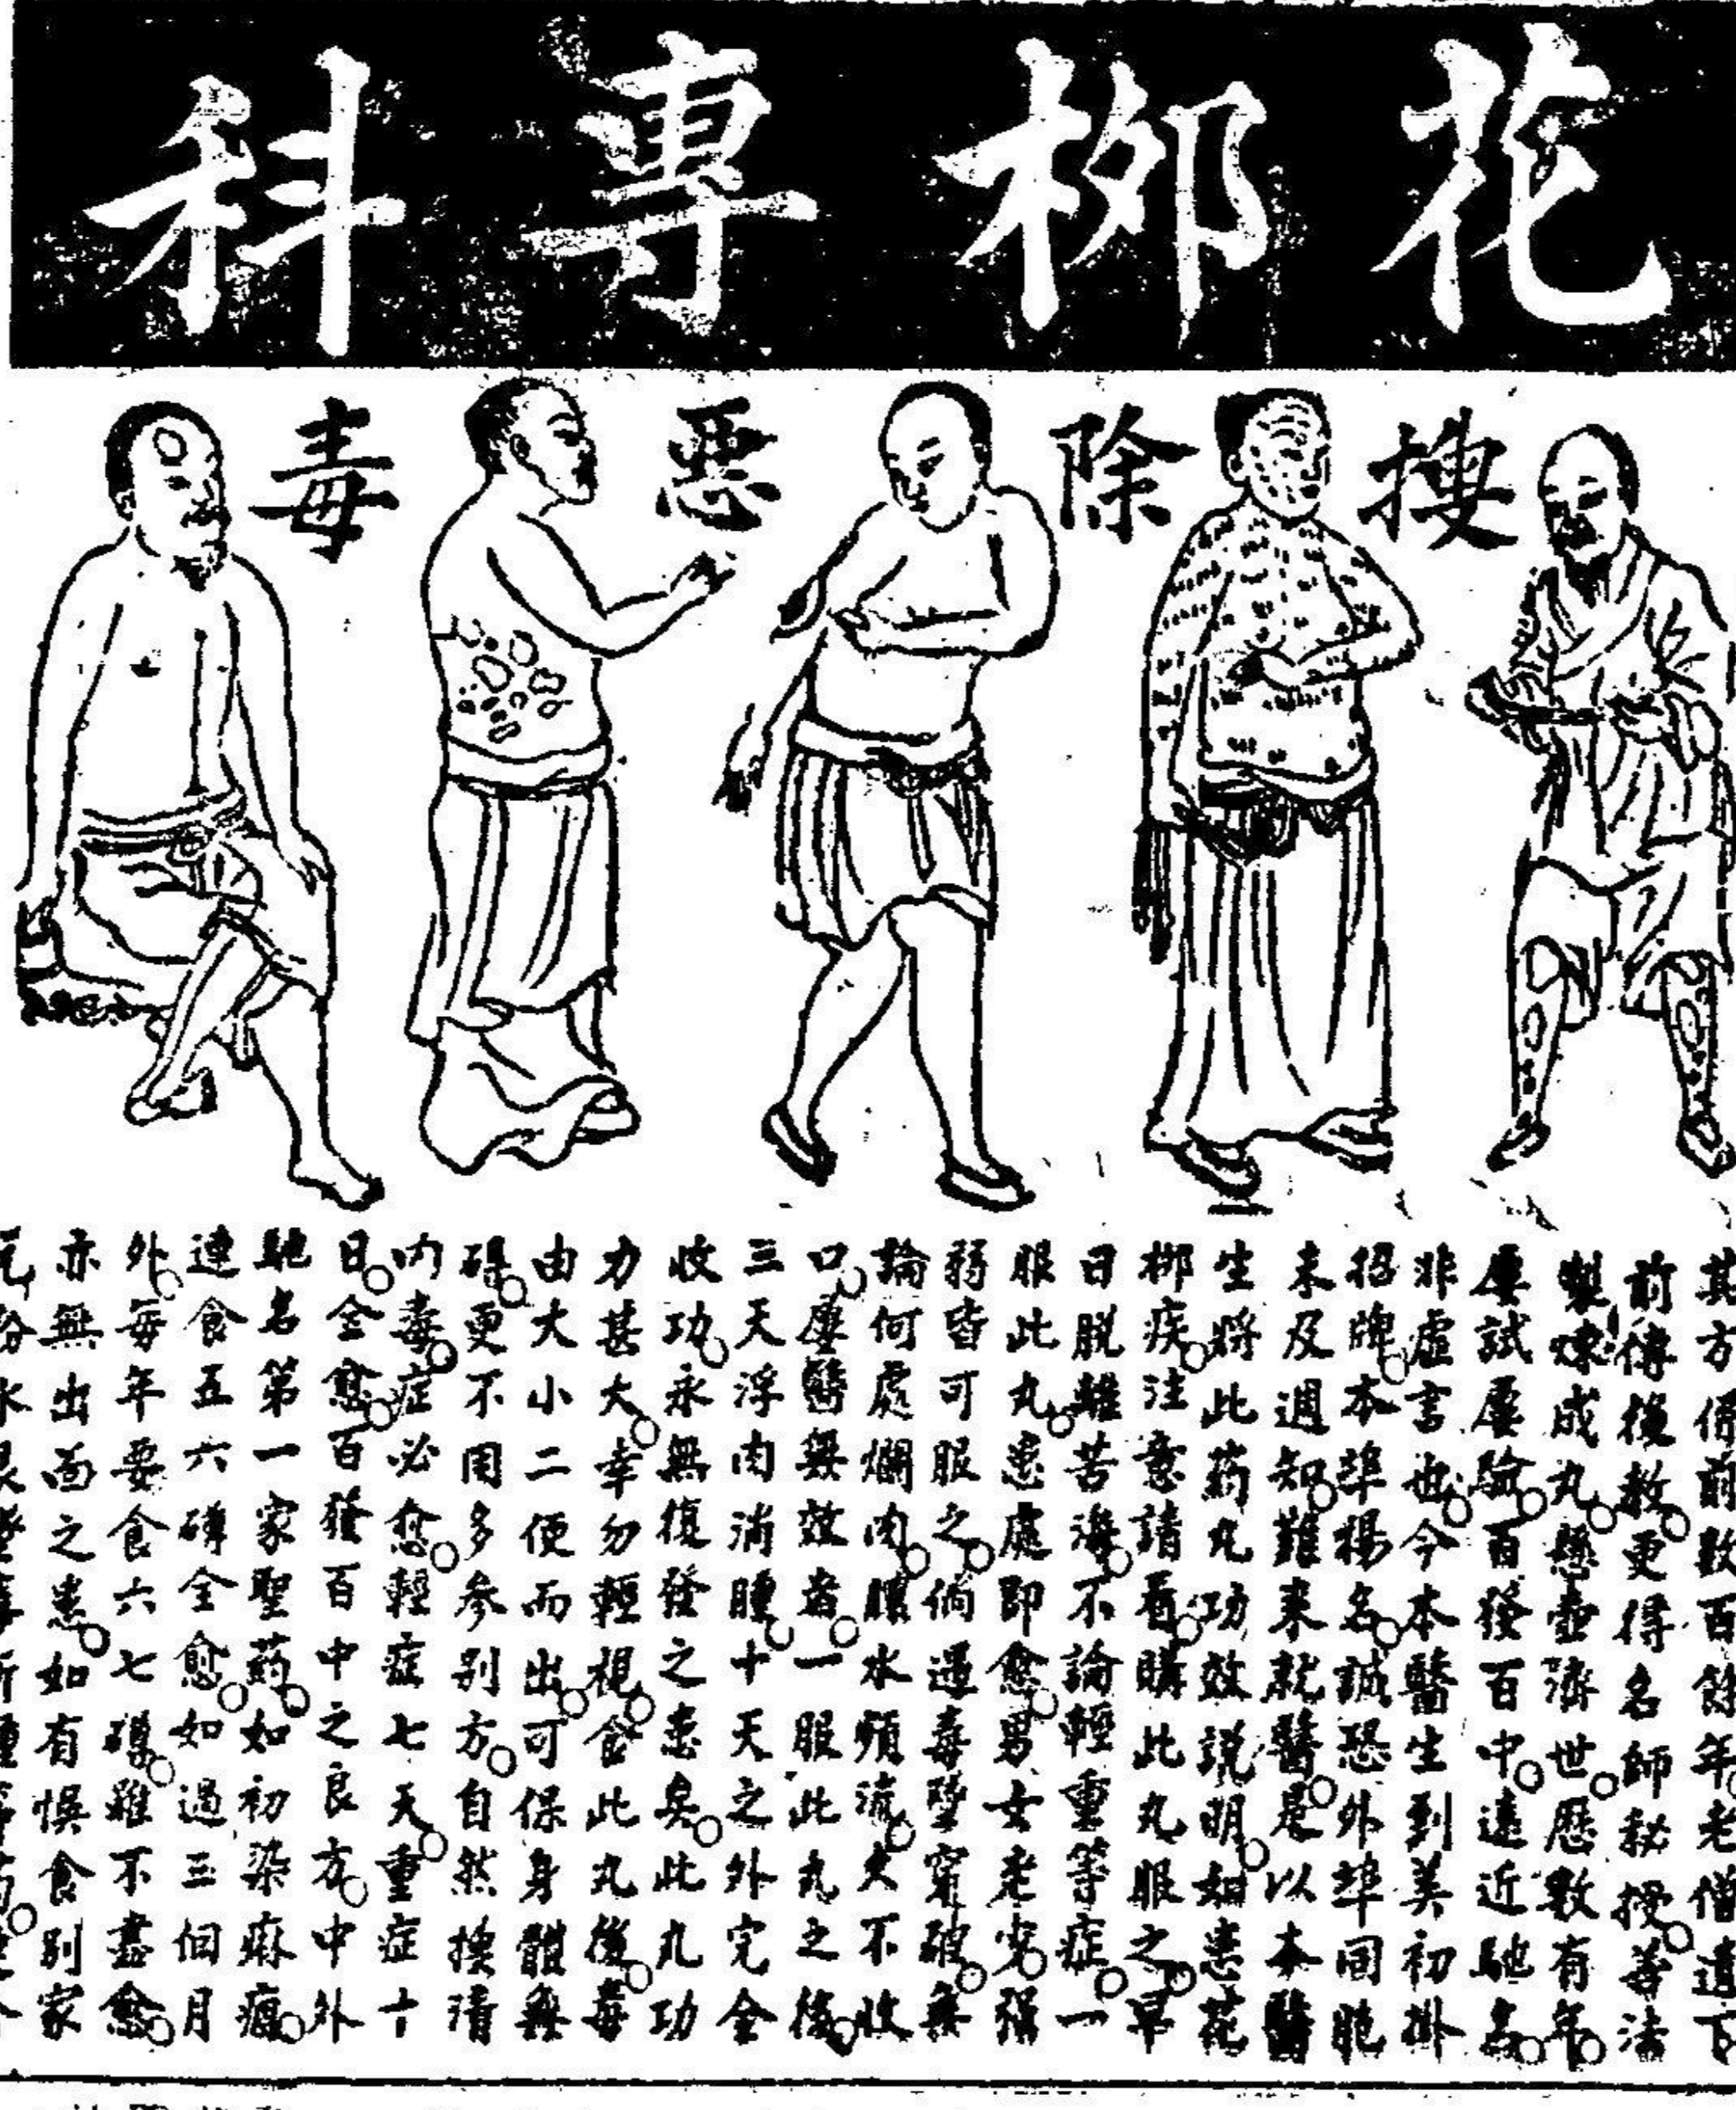 花柳專科
搜除惡毒
其方係前數百餘年老僧遺下
前傳後教更得名師秘授善法
製煉成丸懸壺濟世歷數有年
屢試屢驗百發百中遠近馳名
非虛言也今本醫生到美初掛
招牌本埠揚名誠恐外埠同胞
未及週知難來就醫是以本醫
生將此葯丸功效説明如患花
柳疾注意請看購此丸服之早
日脫離苦海不論輕重等症一
服此丸患處即愈男女老少強
弱皆可服之倘過毒墮穿破無
論何處爛肉膿水頻流久不收
口屢醫無效者一服此丸之後
三天浮肉消腫十天之外完全
收功永無復發之患矣此丸功
力甚大幸勿輕視食此丸後毒
由大小二便而出可保身體無
碍更不用多參別方自然換清
內毒症必愈輕症七天重症十
日全愈百發百中之良方中外
馳名第一家聖葯如初染麻瘋
連食五六磚全愈如過三個月
外每年要食六七磚雖不盡愈
亦無出面之患如有悞食別家